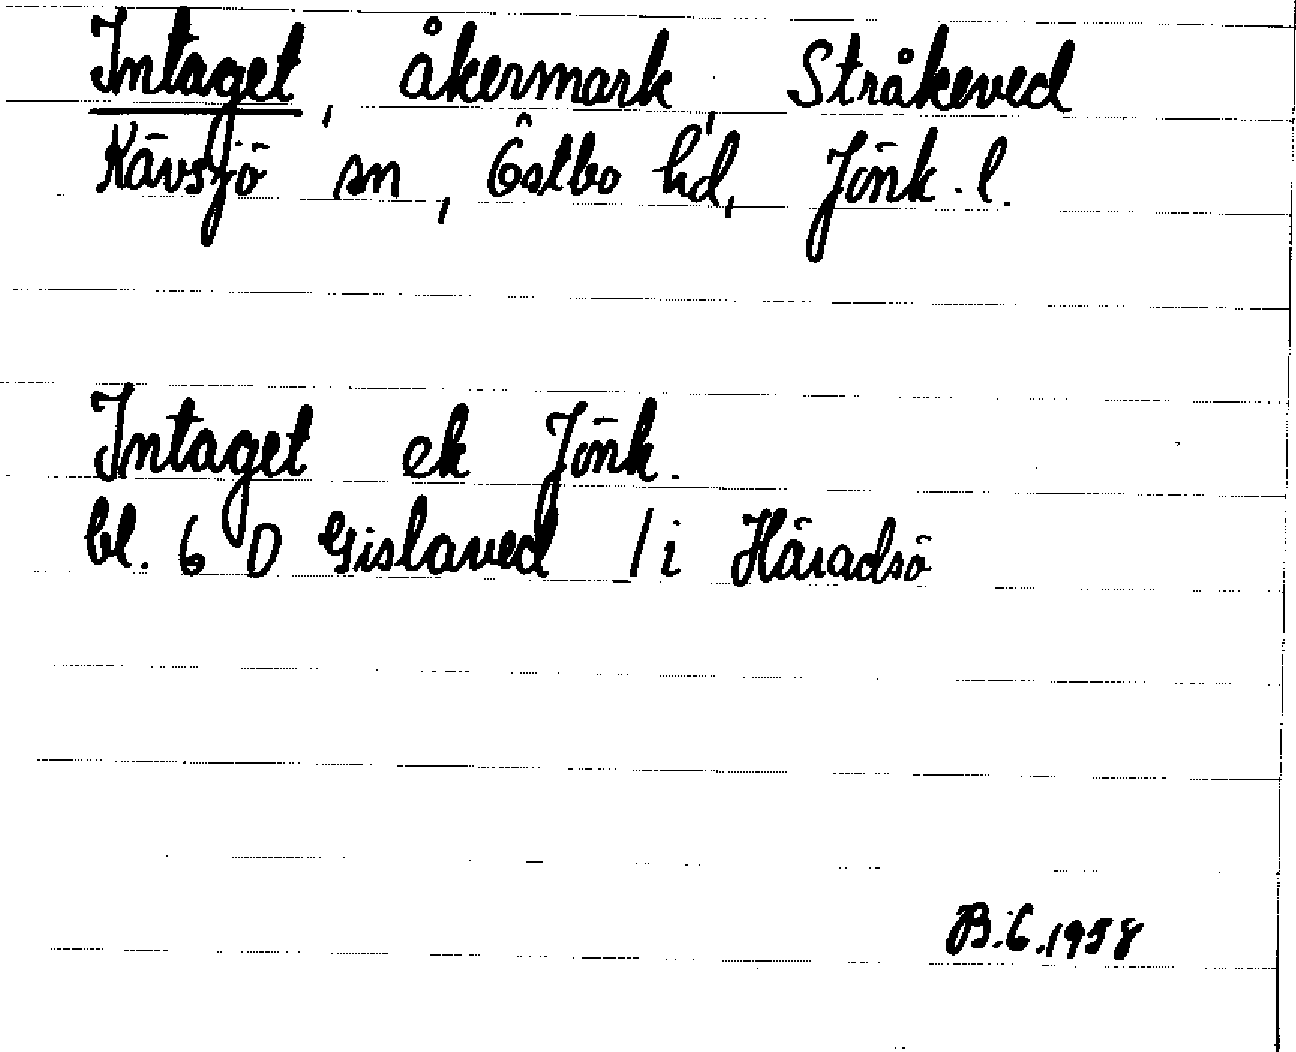 Intaget, åkermark, Stråkeved
Kävsjö sn, Östbo hd, Jönk. l.
Intaget ek Jönk.
bl. 6 D Gislaved / i Häradsö
B.G.1958